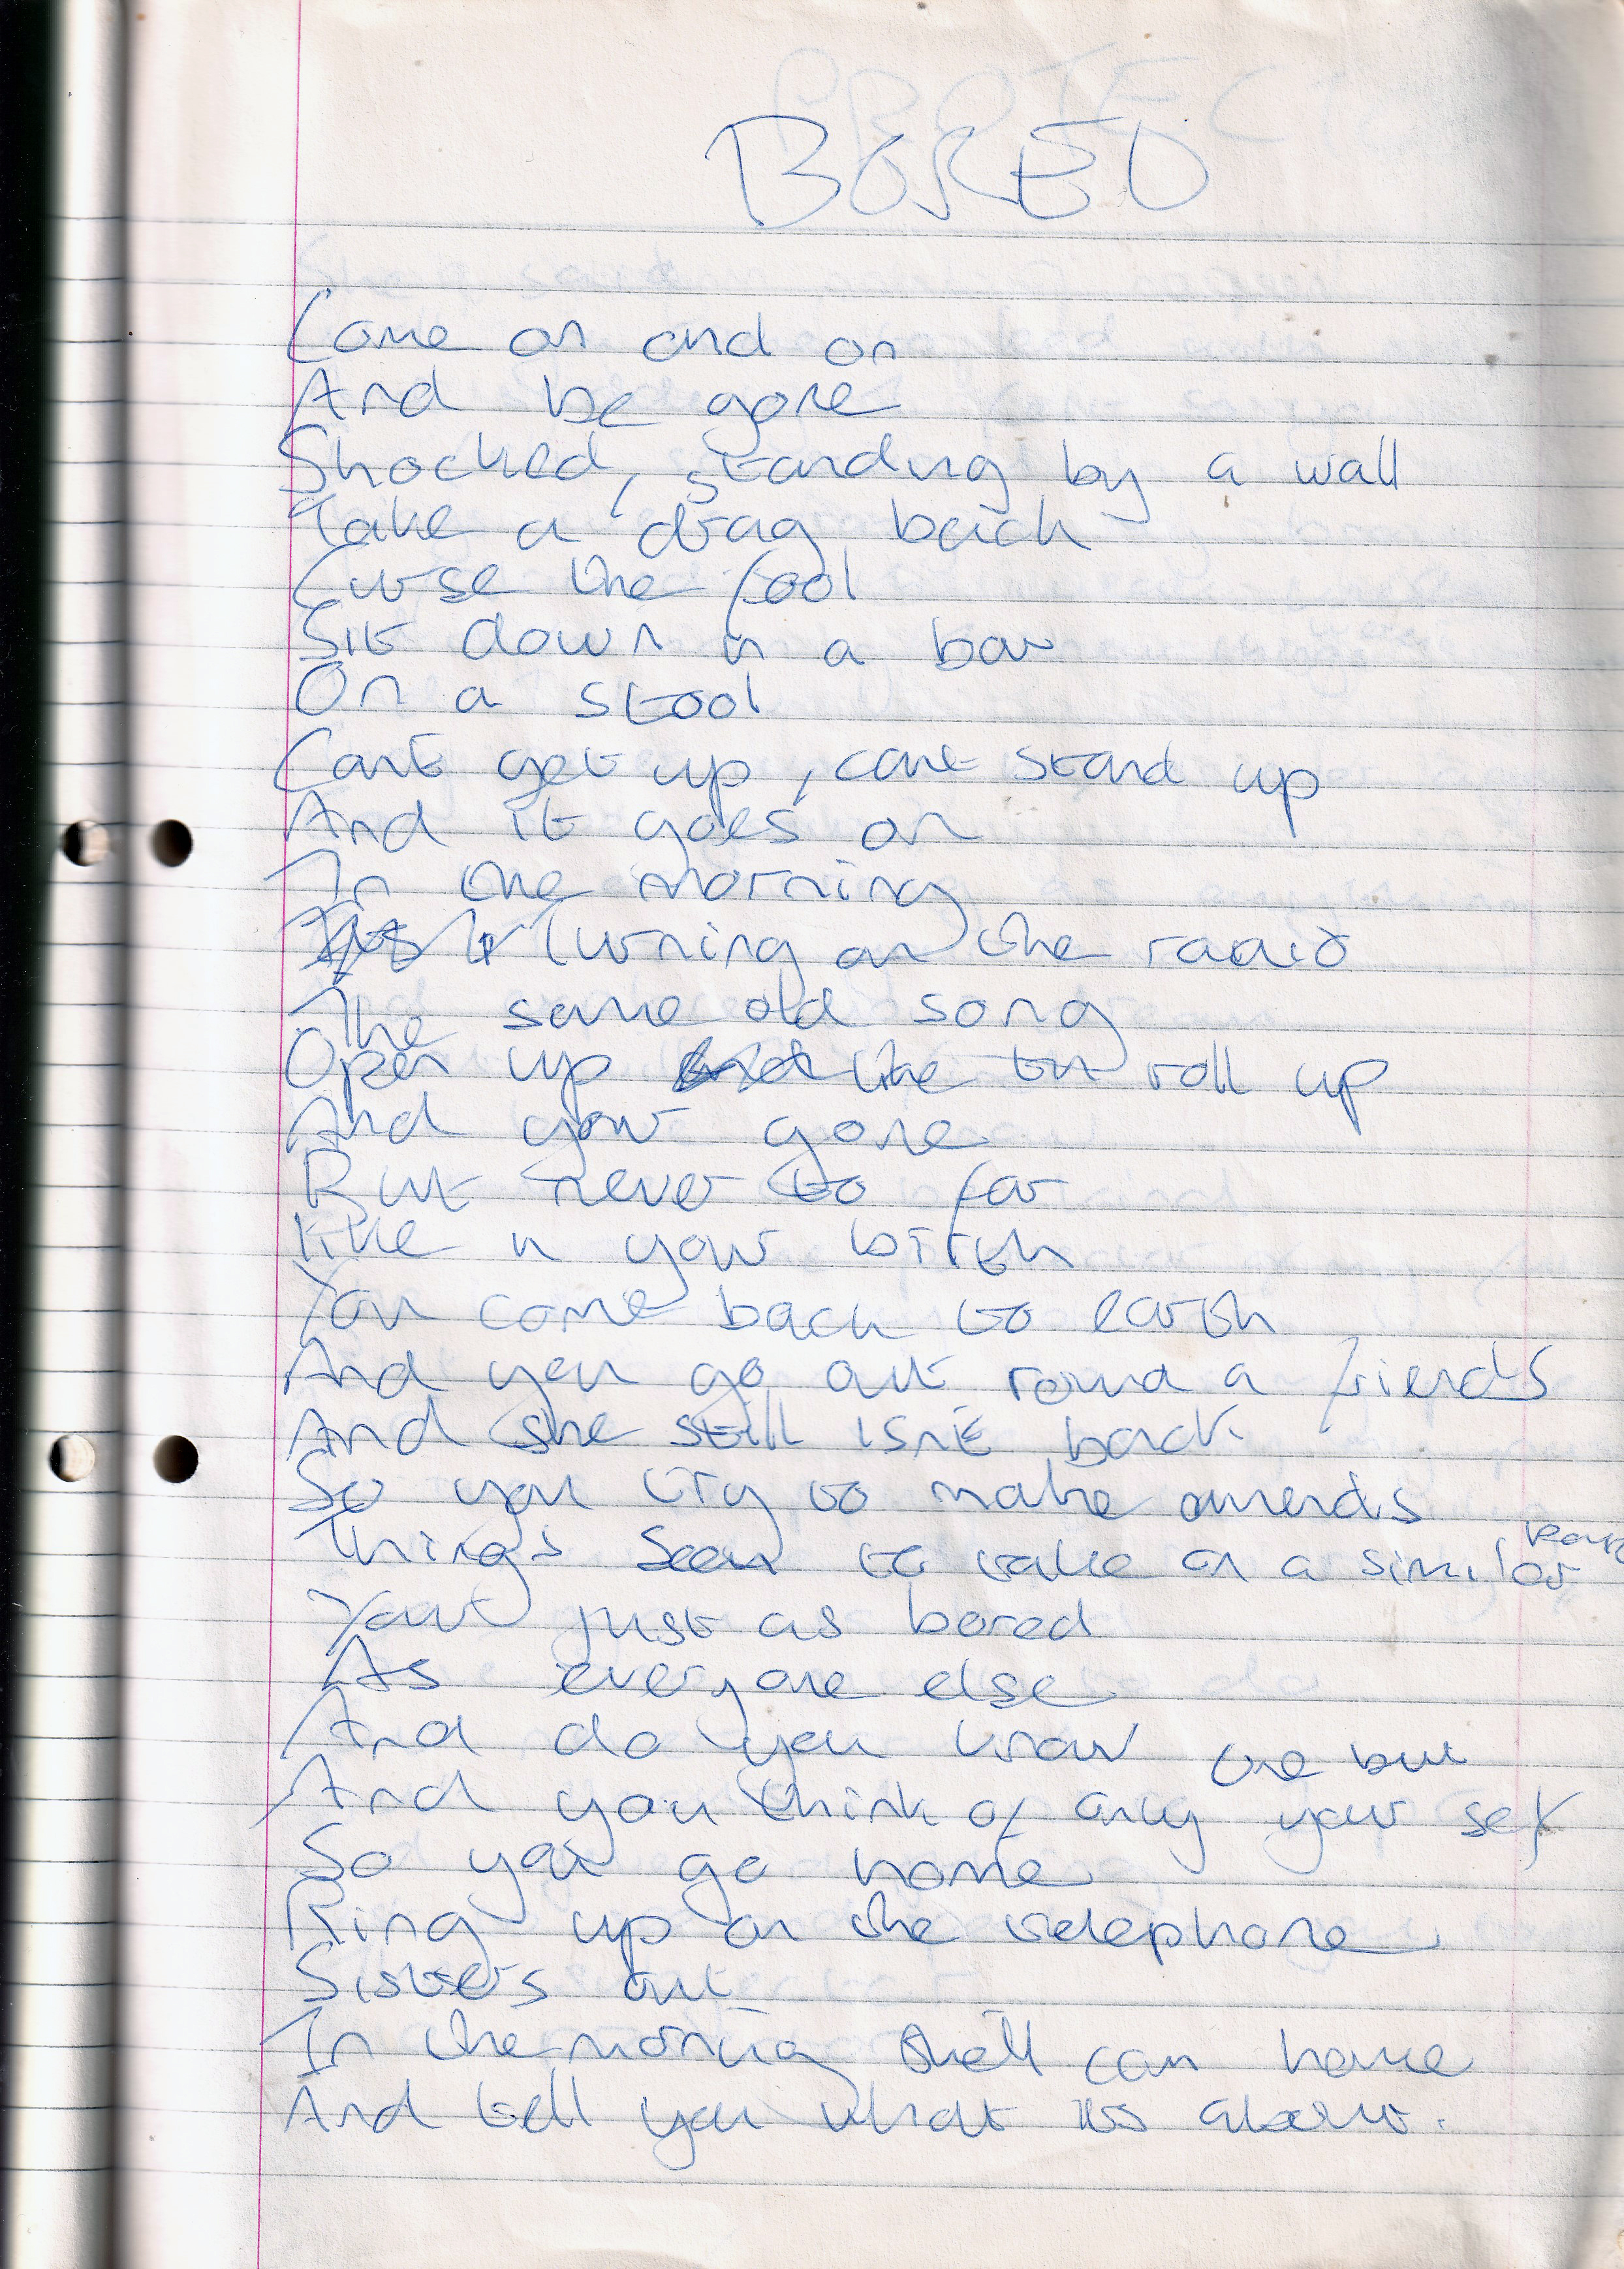 BORED
Come on and on
And be gone
Shocked, standing by a wall
Take a drag back
Curse the fool
Sit down in a bar
On a stool
Cant get up, cant stand up
And it goes on
In the morning
Turning on the radio
The same old song
Open up like the roll up
And your gone
But never to far
like in your birth
You come back to earth
And you go out round a friends
And she still isnt back
So you try to make amends
Things seem to take on a similar
Your just as bored
As everyone else
And do you know
And you think of only your self
So you go home
Ring up on the telephone
Sisters out
In the morning shell come home
And tell you what its about.